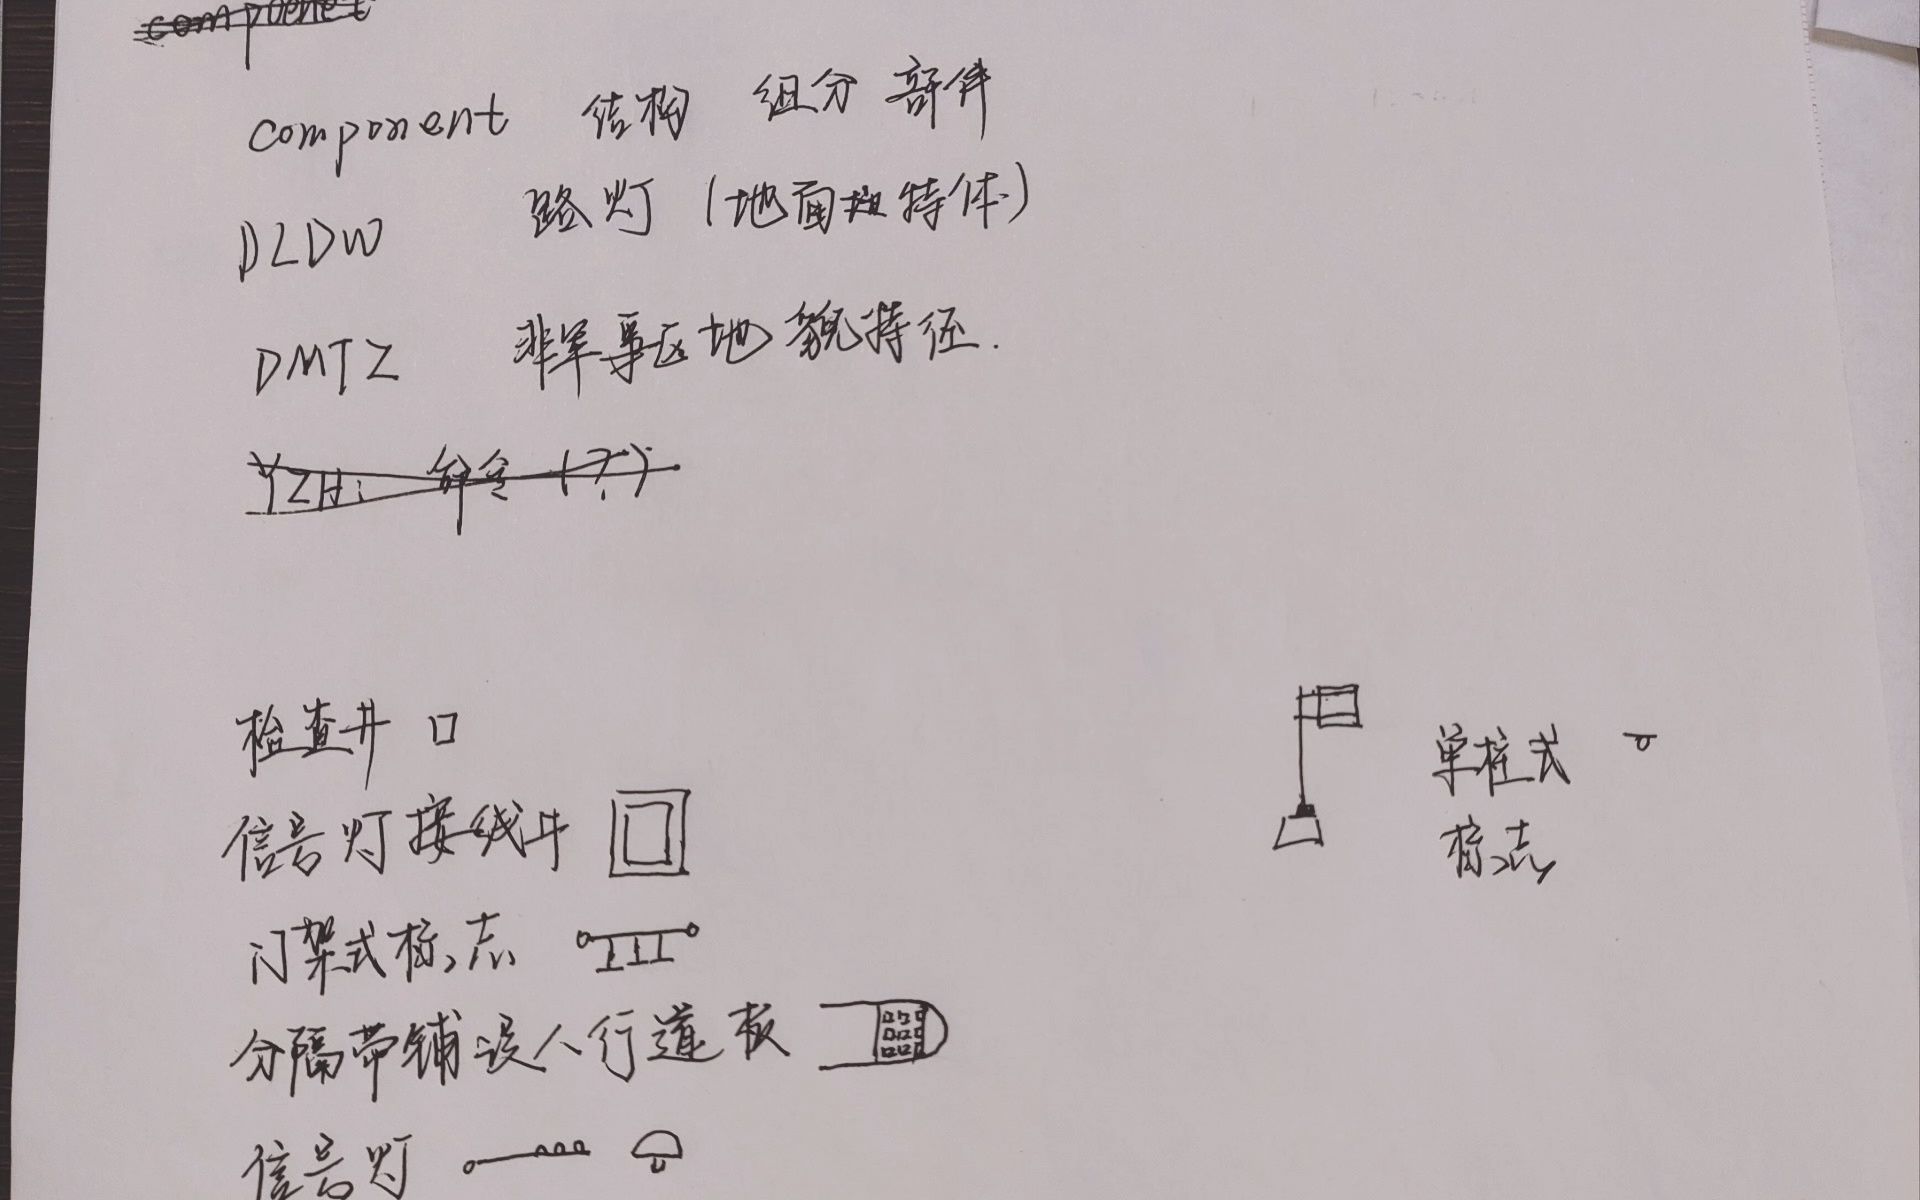 component
component 结构 组分 部件
DLDW 路灯(地面 特体)
DMTZ 非军事区地貌特征.
YZH: 命令(?)
检查井
信号灯接线井
门架式标志
分隔带铺设人行道板
信号灯
单柱式
标志